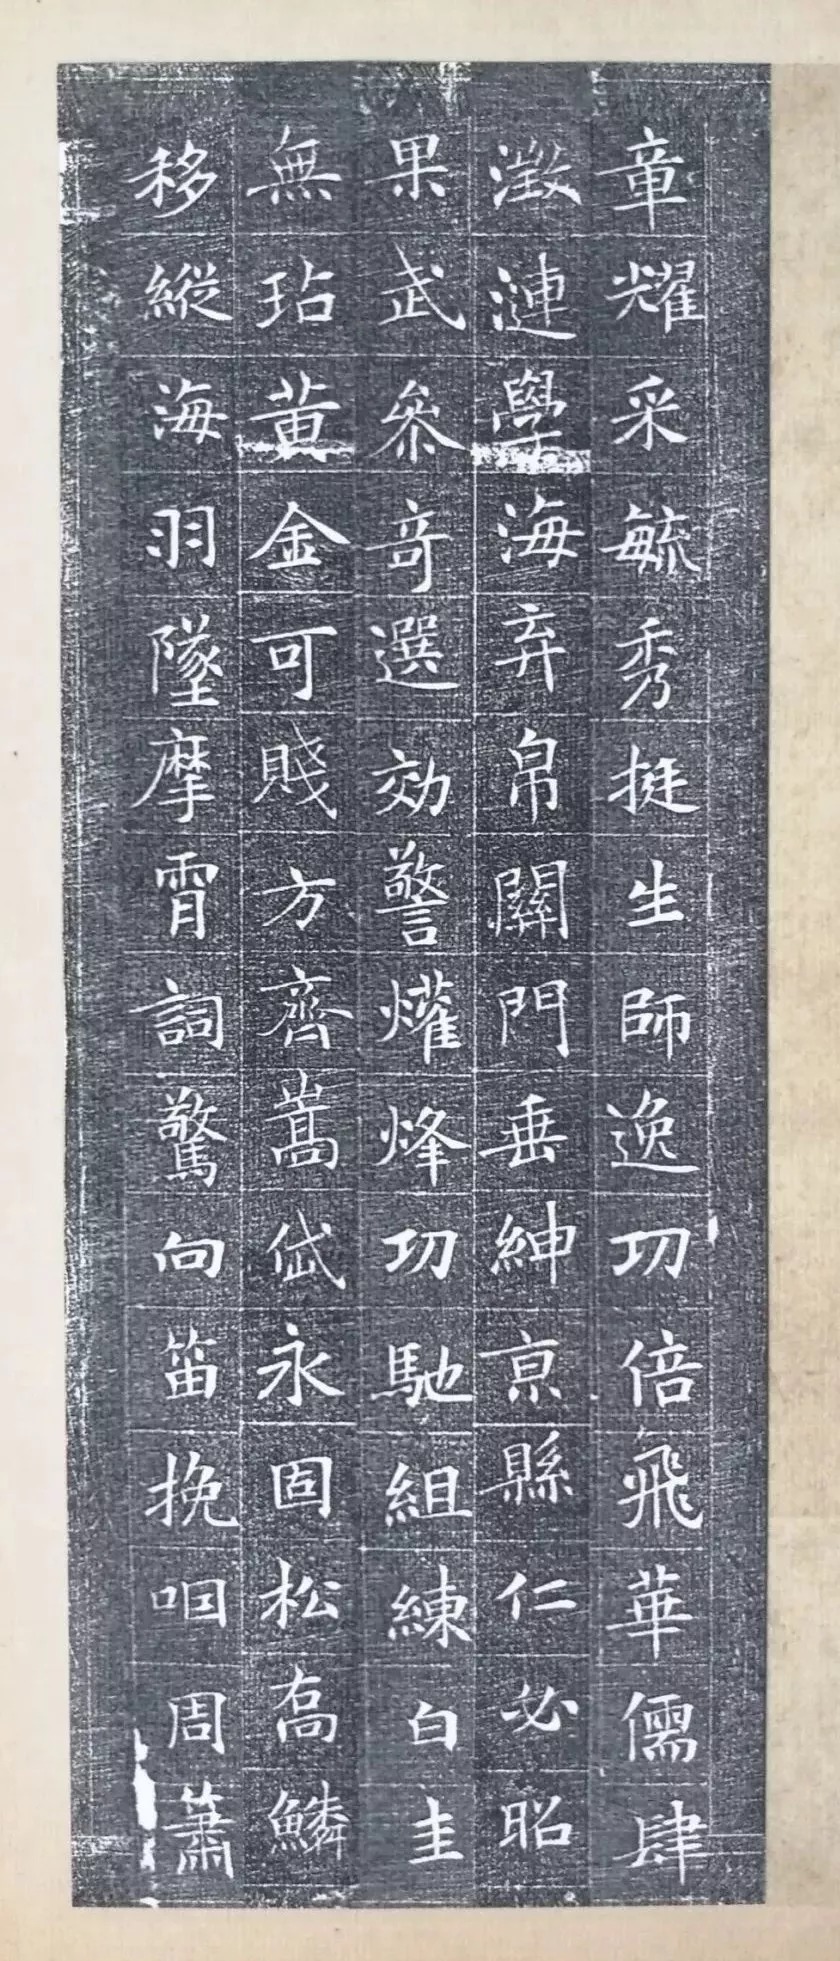 章耀采毓秀挺生師逸功倍飛華儒肆
澂漣學海弃帛關門垂紳京縣仁必昭
果武叅奇選効警爟烽功馳組練白圭
無玷黃金可賤方齊嵩岱永固松高鱗
移縱海羽墜摩霄詞驚向笛挽咽周簫